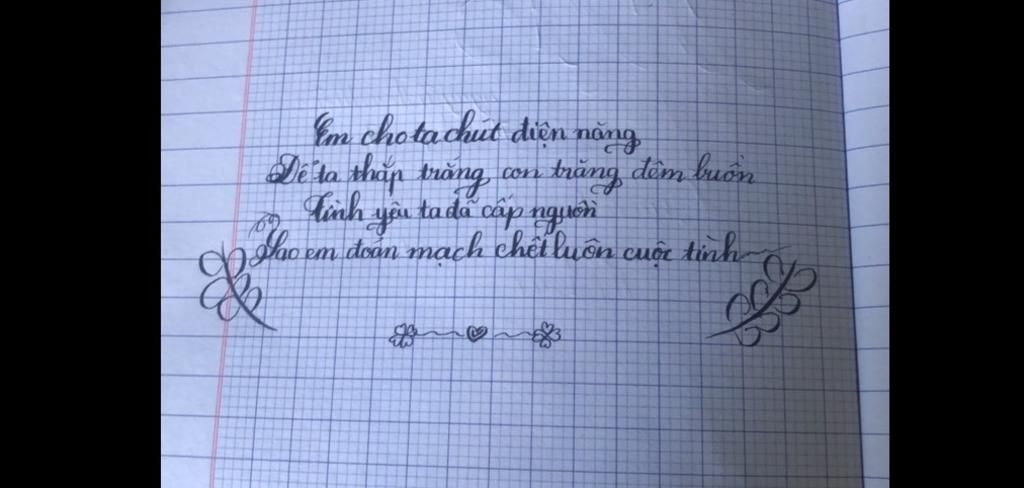 Em cho ta chút điện năng
Để ta thắp trăng con trăng đêm buồn
Tình yêu ta đã cấp nguồn
Sao em đoản mạch chết luôn cuộc tình